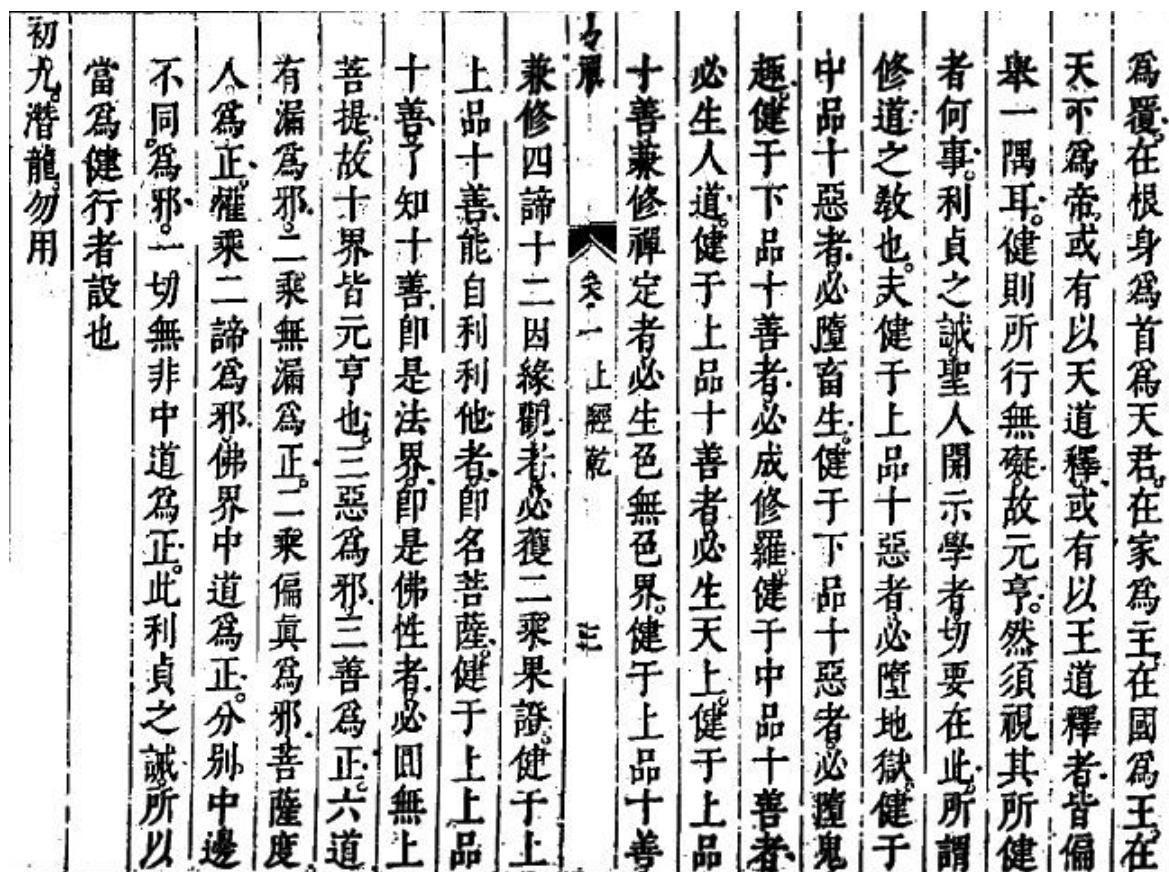 為覆。在根身為首為天君。在家為主。在國為王。在
天下為帝。或有以天道釋。或有以王道釋者。皆偏
舉一隅耳。健則所行無礙。故元亨。然須視其所健
者何事。利貞之誡。聖人開示學者。切要在此。所謂
修道之教也。夫健于上品十惡者。必墮地獄。健于
中品十惡者。必墮畜生。健于下品十惡者。必墮鬼
趣。健于下品十善者。必成修羅。健于中品十善者。
必生人道。健于上品十善者。必生天上。健于上品
十善兼修禪定者。必生色無色界。健于上品十善
卷一 上經乾 三
兼修四諦十二因緣觀者。必獲二乘果證。健于上
上品十善。能自利利他者。即名菩薩。健于上上品
十善。了知十善。即是法界。即是佛性者。必圓無上
菩提。故十界皆元亨也。三惡為邪。三善為正。六道
有漏為邪。二乘無漏為正。二乘偏真為邪。菩薩度
人為正。權乘二諦為邪。佛界中道為正。分別中邊
不同為邪。一切無非中道為正。此利貞之誡。所以
當為健行者設也
初九。潛龍勿用